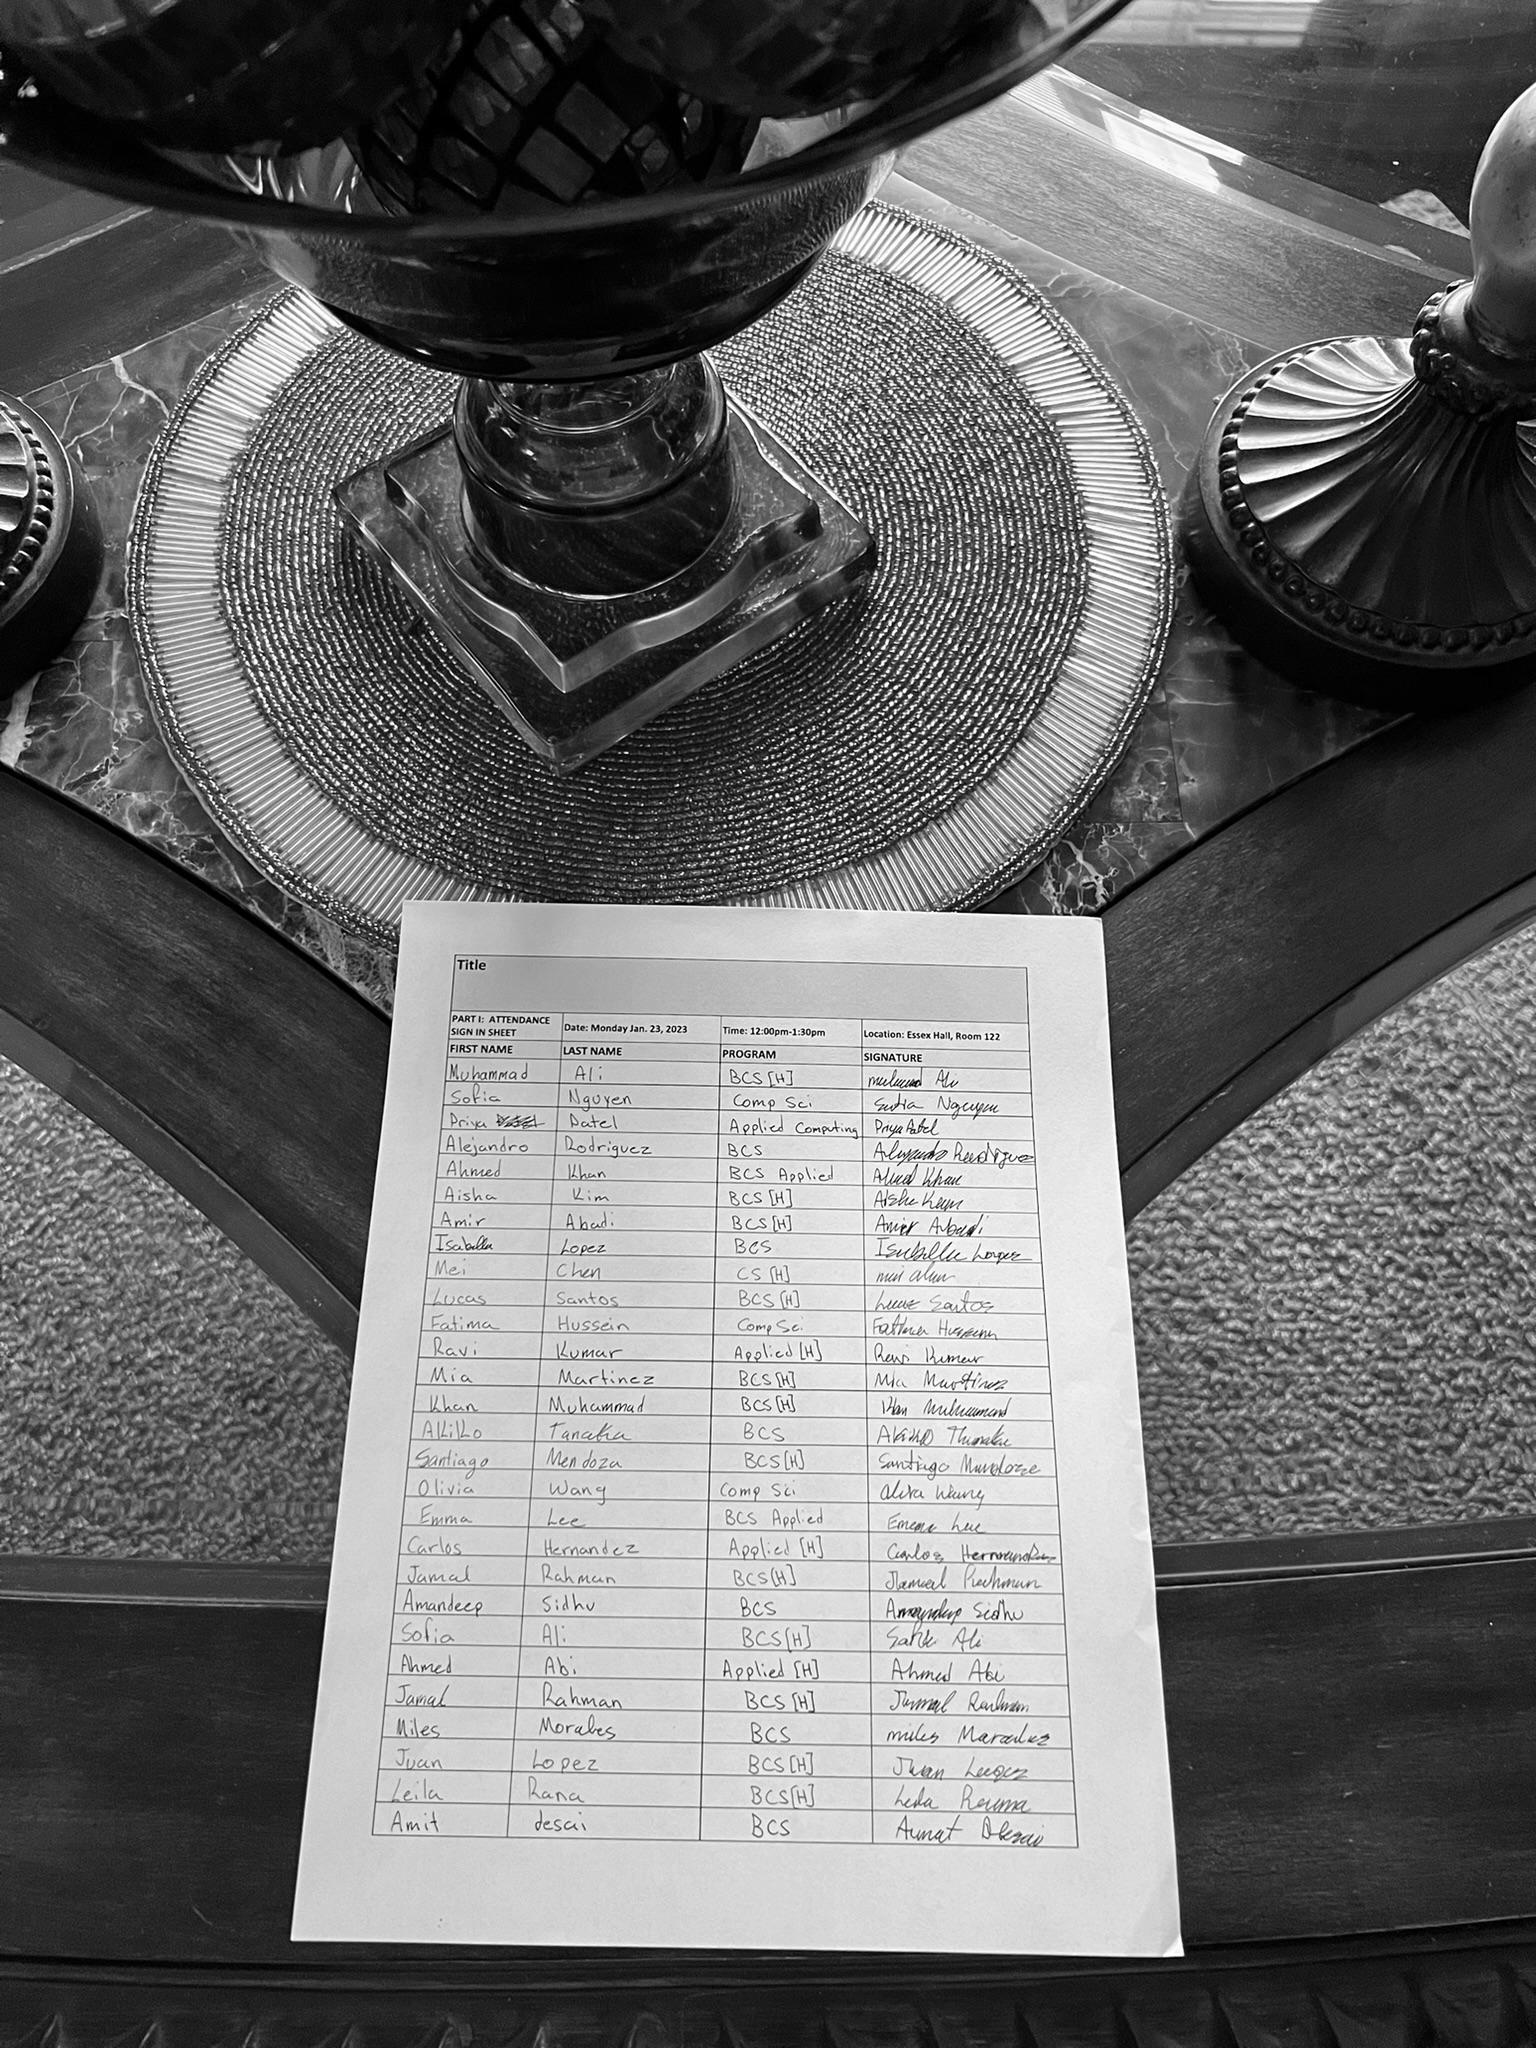 Title
PART I: ATTENDANCE SIGN IN SHEET Date: Monday Jan. 23, 2023 Time: 12:00pm-1:30pm Location: Essex Hall, Room 122
FIRST NAME LAST NAME PROGRAM SIGNATURE
Muhammad Ali BCS [H] Ali
Sofia Nguyen Comp Sci Nguyen
Priya Patel Applied Computing Priya Patel
Alejandro Rodriguez BCS Alejandro Rodriguez
Ahmed Khan BCS Applied Ahmed Khan
Aisha Kim BCS [H] Aisha
Amir Abadi BCS [H] Amir Abadi
Isabella Lopez BCS Isabella Lopez
Mei Chen CS [H]
Lucas Santos BCS [H] Lucas Santos
Fatima Hussein Comp Sci Fatima Hussein
Ravi Kumar Applied [H] Ravi Kumar
Mia Martinez BCS [H] Mia Martinez
Khan Muhammad BCS [H] Khan Muhammad
Akiko Tanaka BCS
Santiago Mendoza BCS [H] Santiago
Olivia Wang Comp Sci Wang
Emma Lee BCS Applied Emma Lee
Carlos Hernandez Applied [H] Carlos Hernandez
Jamal Rahman BCS [H] Jamal Rahman
Amandeep Sidhu BCS Amandeep Sidhu
Sofia Ali BCS [H] Ali
Ahmed Abi Applied [H] Ahmed Abi
Jamal Rahman BCS [H] Jamal Rahman
Miles Morales BCS miles
Juan Lopez BCS [H] Juan
Leila Rana BCS [H]
Amit desai BCS